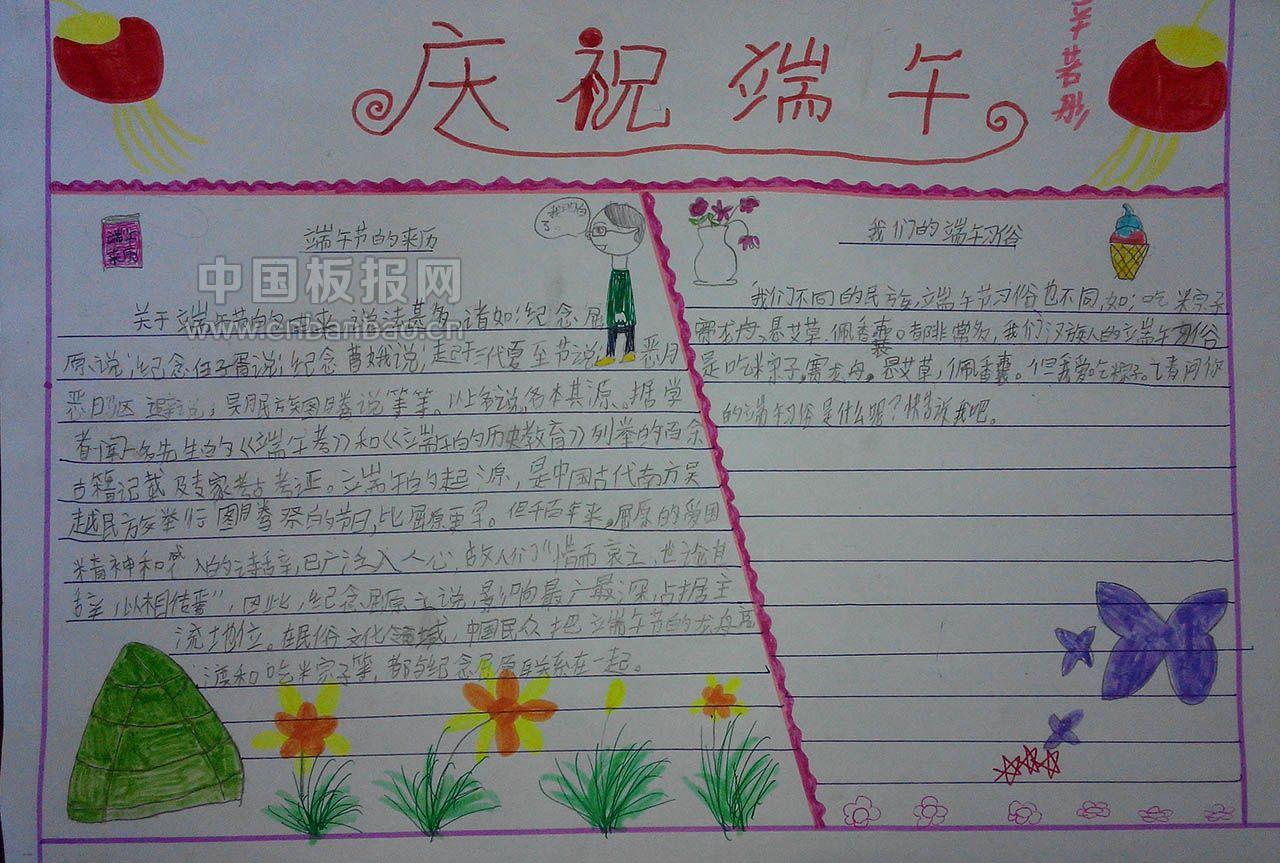 庆祝端午
端午节的来历
中国板报网
www.cnbanbao.cn
关于端午节的由来,说法甚多,诸如:纪念屈
原说;纪念伍子胥说;纪念曹娥说;起于三代夏至节说;恶月
恶日驱避说,吴月民族图腾说等等。以上各说,各本其源。据学
者闻一名先生的《端午考》和《端午的历史教育》列举的百余
古籍记载及专家考古考证。端午的起源,是中国古代南方吴
越民族举行图腾祭的节日,比屈原更早。但千百年来,屈原的爱国
精神和感人的诗辞,已广泛入人心,故人们“惜而哀之,世论其
辞,以相传焉”,因此,纪念屈原之说,影响最广最深,占据主
流地位。在民俗文化领域,中国民众把端午节的龙舟竞
渡和吃粽子等,都与纪念屈原联系在一起。
我们的端午习俗
我们不同的民族,端午节习俗也不同,如:吃粽子
赛龙舟、悬艾草、佩香囊。都非常多,我们汉族人的端午习俗
是吃粽子,赛龙舟,悬艾草,佩香囊。但我爱吃粽子。
的端午习俗是什么呢?快告诉我吧。